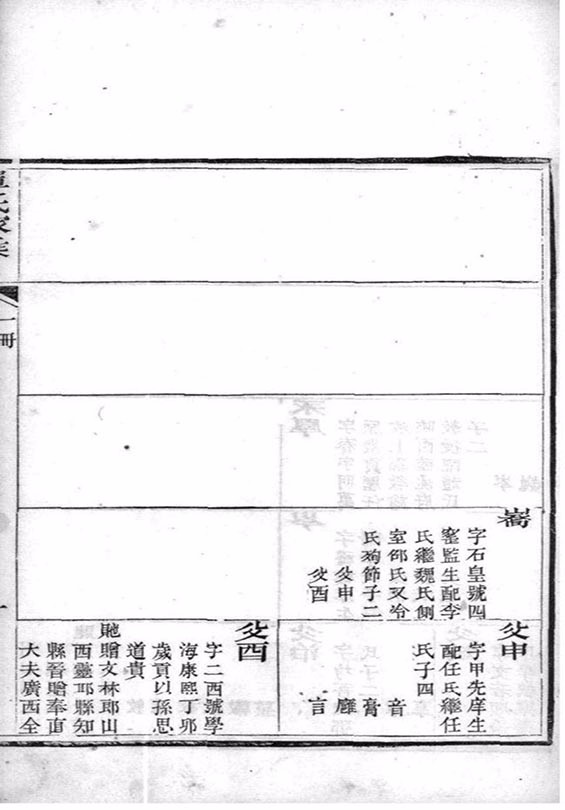 一冊
嵩
字石皇號四
監生配李
氏繼魏氏側
室邵氏又冷
氏殉節子二
攵申
攵酉
攵申
字甲先庠生
配任氏繼任
氏子四
音
膏
言
攵酉
字二酉號學
海康熙丁卯
歲貢以孫思
道貴
貤贈文林郎山
西靈邱縣知
縣晉贈奉直
大夫廣西全